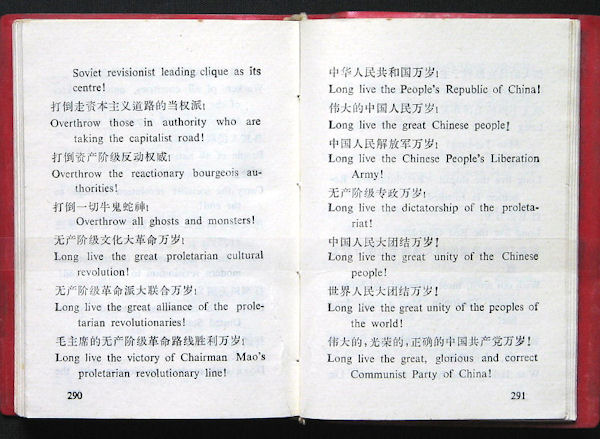 Soviet revisionist leading clique as its
centre!
打倒走资本主义道路的当权派!
Overthrow those in authority who are
taking the capitalist road!
打倒资产阶级反动权威!
Overthrow the reactionary bourgeois au-
thorities!
打倒一切牛鬼蛇神!
Overthrow all ghosts and monsters!
无产阶级文化大革命万岁!
Long live the great proletarian cultural
revolution!
无产阶级革命派大联合万岁!
Long live the great alliance of the prole-
tarian revolutionaries!
毛主席的无产阶级革命路线胜利万岁!
Long live the victory of Chairman Mao's
proletarian revolutionary line!
290
中华人民共和国万岁!
Long live the People's Republic of China!
伟大的中国人民万岁!
Long live the great Chinese people!
中国人民解放军万岁!
Long live the Chinese People's Liberation
Army!
无产阶级专政万岁!
Long live the dictatorship of the proleta-
riat!
中国人民大团结万岁!
Long live the great unity of the Chinese
people!
世界人民大团结万岁!
Long live the great unity of the peoples of
the world!
伟大的,光荣的,正确的中国共产党万岁!
Long live the great, glorious and correct
Communist Party of China!
291